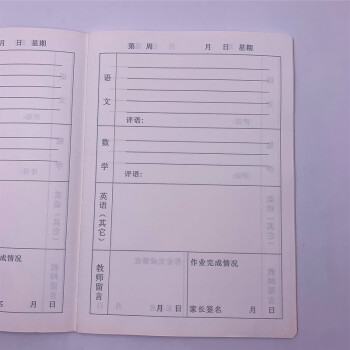 月 日 星期
第 周 月 日 星期
语文
评语:
数学
评语:
英语(其它)
教师留言
月 日
作业完成情况
家长签名 月 日
成情况
名 月 日